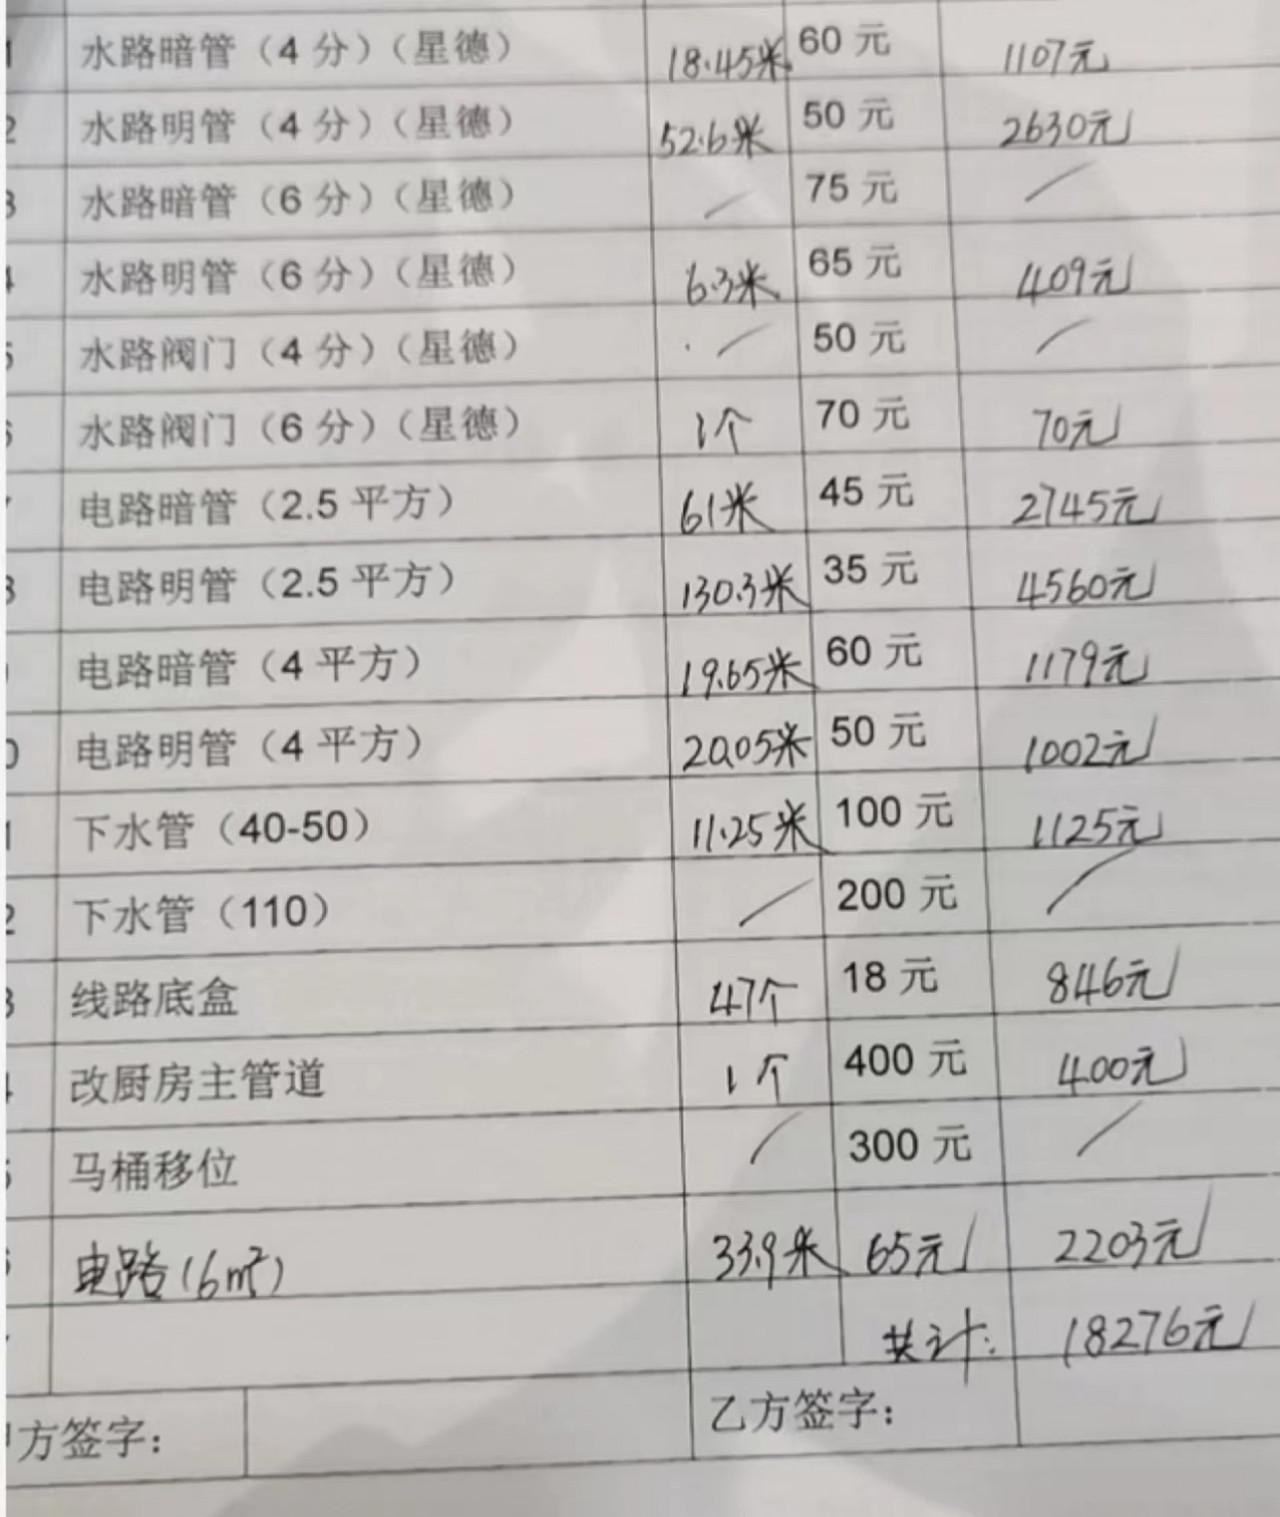 1 水路暗管（4 分）（星德） 18.45米 60 元 1107元
2 水路明管（4 分）（星德） 52.6米 50 元 2630元
3 水路暗管（6 分）（星德） / 75 元 /
4 水路明管（6 分）（星德） 6.3米 65 元 409元
5 水路阀门（4 分）（星德） / 50 元 /
6 水路阀门（6 分）（星德） 1个 70 元 70元
电路暗管（2.5 平方） 61米 45 元 2745元
8 电路明管（2.5 平方） 130.3米 35 元 4560元
电路暗管（4 平方） 19.65米 60 元 1179元
0 电路明管（4 平方） 20.05米 50 元 1002元
1 下水管（40-50） 11.25米 100 元 1125元
2 下水管（110） / 200 元 /
3 线路底盒 47个 18 元 846元
4 改厨房主管道 1个 400 元 400元
5 马桶移位 / 300 元 /
电路(6m²) 33.9米 65元 2203元
共计: 18276元
方签字： 乙方签字：